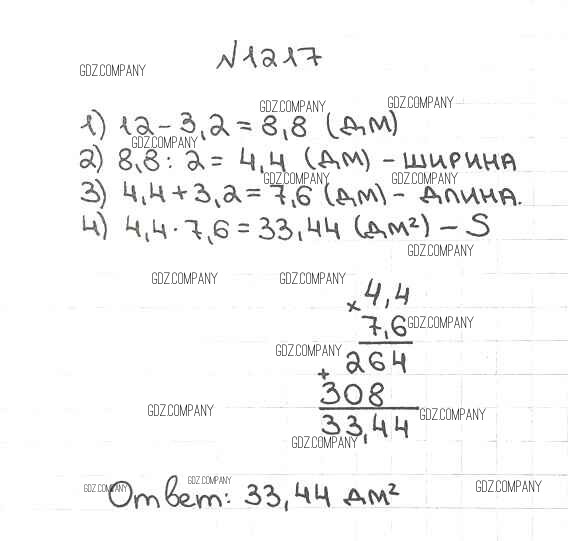 №1217
GDZ.COMPANY
GDZ.COMPANY GDZ.COMPANY
1) 12 - 3,2 = 8,8 (дм)
GDZ.COMPANY
2) 8,8 : 2 = 4,4 (дм) - ширина
GDZ.COMPANY GDZ.COMPANY
3) 4,4 + 3,2 = 7,6 (дм) - длина.
4) 4,4 · 7,6 = 33,44 (дм²) - S
GDZ.COMPANY
GDZ.COMPANY GDZ.COMPANY
× 4,4
7,6 GDZ.COMPANY
GDZ.COMPANY
+ 264
308
GDZ.COMPANY GDZ.COMPANY
33,44
GDZ.COMPANY
GDZ.COMPANY GDZ.COMPANY GDZ.COMPANY
Ответ: 33,44 дм²